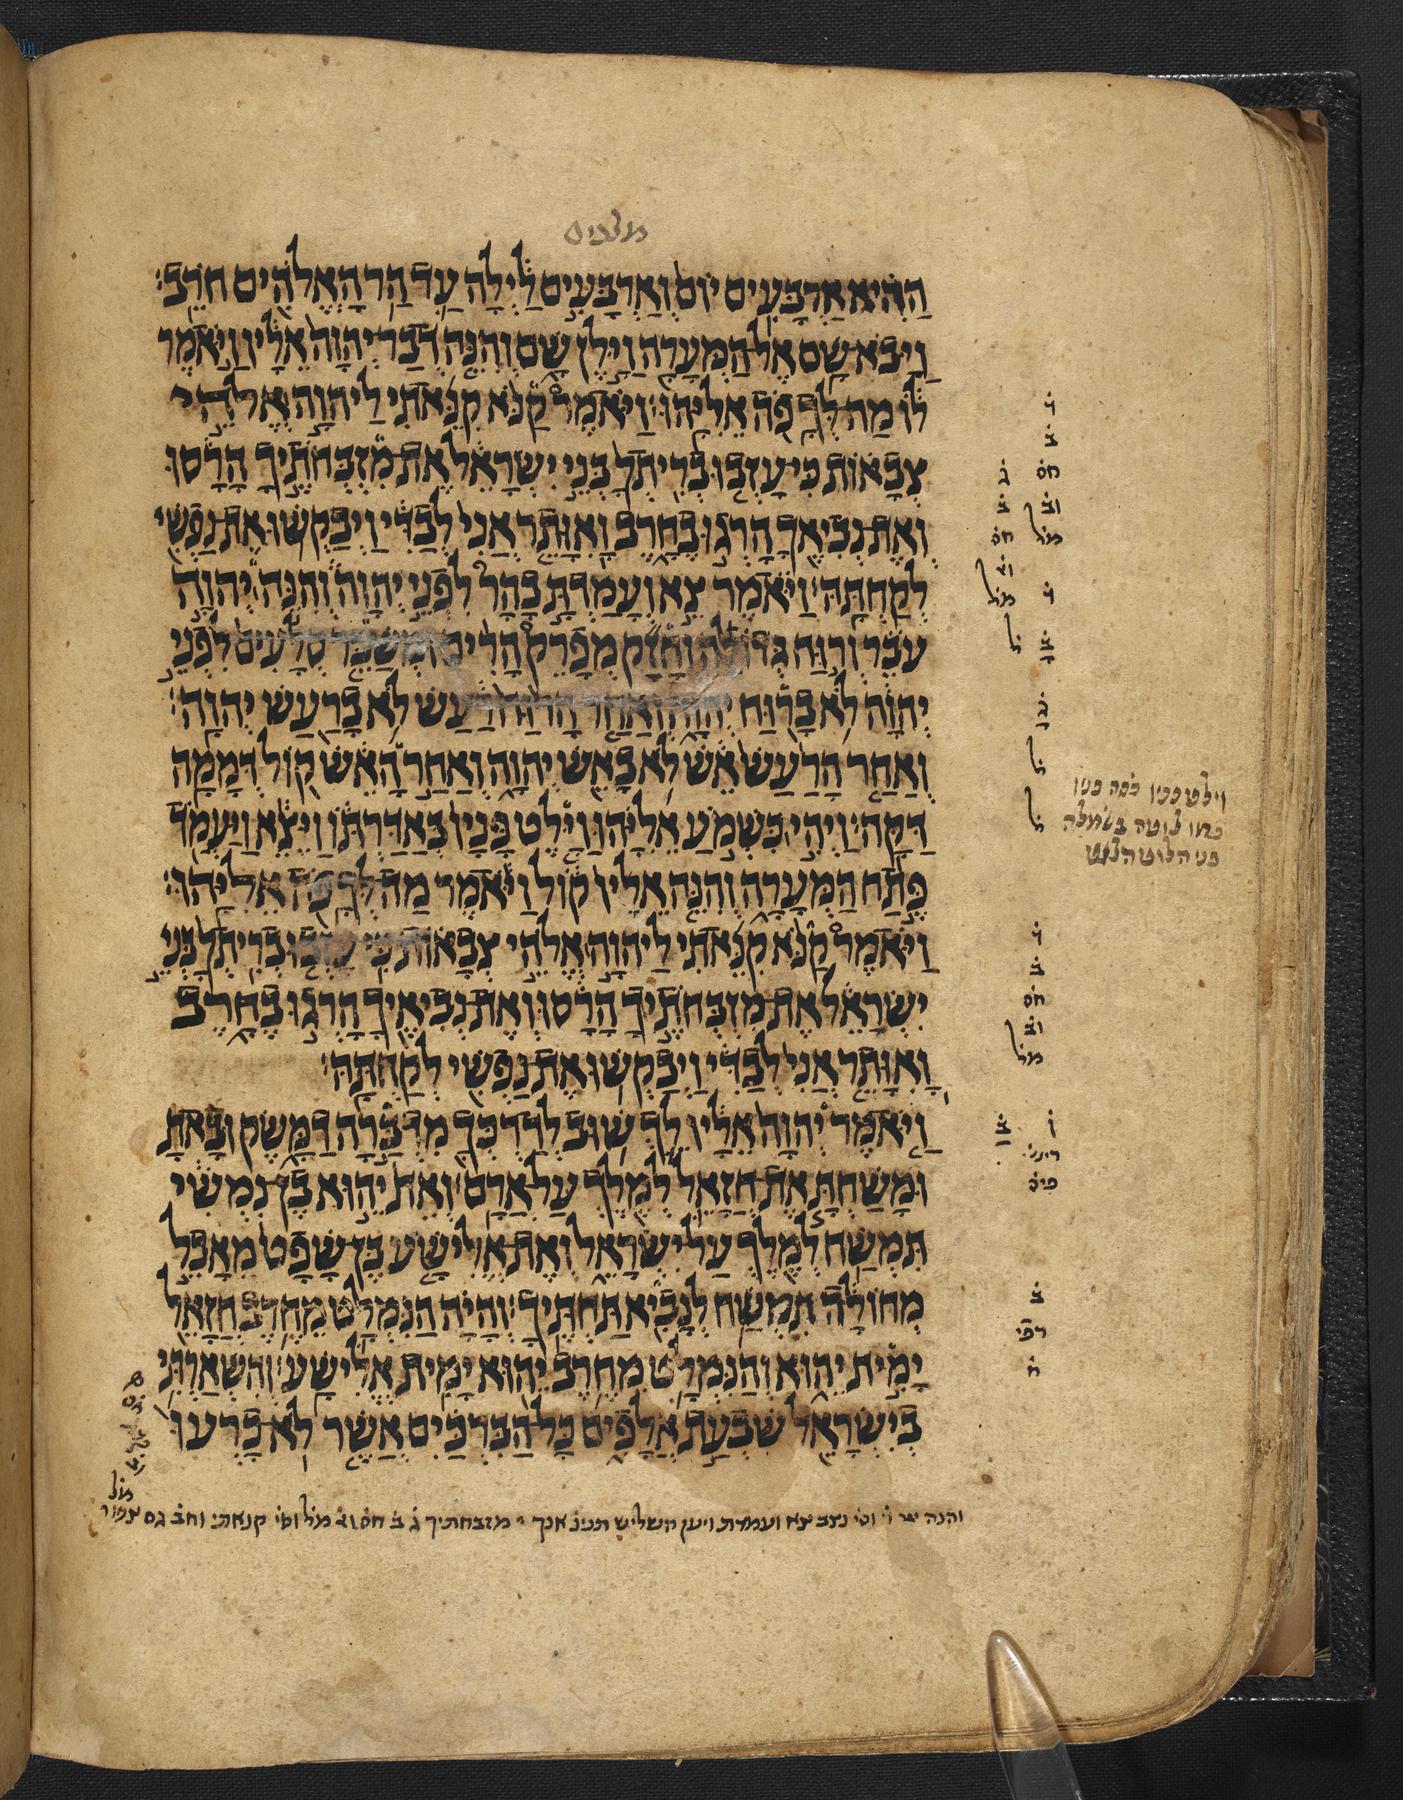 מלכים
הַהִ֗יא אַרְבָּעִ֥ים יוֹם֙ וְאַרְבָּעִ֣ים לַ֔יְלָה עַ֛ד הַ֥ר הָאֱלֹהִ֖ים חֹרֵֽב׃
וַיָּבֹא־שָׁ֥ם אֶל־הַמְּעָרָ֖ה וַיָּ֣לֶן שָׁ֑ם וְהִנֵּ֤ה דְבַר־יְהוָה֙ אֵלָ֔יו וַיֹּ֣אמֶר
ל֔וֹ מַה־לְּךָ֥ פֹ֖ה אֵלִיָּֽהוּ׃ וַיֹּאמֶר֩ קַנֹּ֨א קִנֵּ֜אתִי לַיהוָ֣ה׀ אֱלֹהֵ֣י
צְבָא֗וֹת כִּֽי־עָזְב֤וּ בְרִֽיתְךָ֙ בְּנֵ֣י יִשְׂרָאֵ֔ל אֶת־מִזְבְּחֹתֶ֣יךָ הָרָ֔סוּ
וְאֶת־נְבִיאֶ֖יךָ הָרְג֣וּ בֶחָ֑רֶב וָֽאִוָּתֵ֤ר אֲנִי֙ לְבַדִּ֔י וַיְבַקְשׁ֥וּ אֶת־נַפְשִׁ֖י
לְקַחְתָּֽהּ׃ וַיֹּ֗אמֶר צֵ֣א וְעָמַדְתָּ֣ בָהָר֮ לִפְנֵ֣י יְהוָה֒ וְהִנֵּ֧ה יְהוָ֣ה
עֹבֵ֗ר וְר֣וּחַ גְּדוֹלָ֡ה וְחָזָ֞ק מְפָרֵק֩ הָרִ֨ים וּמְשַׁבֵּ֤ר סְלָעִים֙ לִפְנֵ֣י
יְהוָ֔ה לֹ֥א בָר֖וּחַ יְהוָ֑ה וְאַחַ֤ר הָר֙וּחַ֙ רַ֔עַשׁ לֹ֥א בָרַ֖עַשׁ יְהוָֽה׃
וְאַחַ֤ר הָרַ֙עַשׁ֙ אֵ֔שׁ לֹ֥א בָאֵ֖שׁ יְהוָ֑ה וְאַחַ֣ר הָאֵ֔שׁ ק֖וֹל דְּמָמָ֥ה
דַקָּֽה׃ וַיְהִ֣י׀ כִּשְׁמֹ֣עַ אֵלִיָּ֗הוּ וַיָּ֤לֶט פָּנָיו֙ בְּאַדַּרְתּ֔וֹ וַיֵּצֵ֕א וַֽיַּעֲמֹ֖ד
פֶּ֣תַח הַמְּעָרָ֑ה וְהִנֵּ֤ה אֵלָיו֙ ק֔וֹל וַיֹּ֕אמֶר מַה־לְּךָ֥ פֹ֖ה אֵלִיָּֽהוּ׃
וַיֹּאמֶר֩ קַנֹּ֨א קִנֵּ֜אתִי לַיהוָ֣ה׀ אֱלֹהֵ֣י צְבָא֗וֹת כִּֽי־עָזְב֤וּ בְרִֽיתְךָ֙ בְּנֵ֣י
יִשְׂרָאֵ֔ל אֶת־מִזְבְּחֹתֶ֣יךָ הָרָ֔סוּ וְאֶת־נְבִיאֶ֖יךָ הָרְג֣וּ בֶחָ֑רֶב
וָאִוָּתֵ֤ר אֲנִי֙ לְבַדִּ֔י וַיְבַקְשׁ֥וּ אֶת־נַפְשִׁ֖י לְקַחְתָּֽהּ׃
וַיֹּ֤אמֶר יְהוָה֙ אֵלָ֔יו לֵ֛ךְ שׁ֥וּב לְדַרְכְּךָ֖ מִדְבַּ֣רָה דַמָּ֑שֶׂק וּבָ֗אתָ
וּמָשַׁחְתָּ֧ אֶת־חֲזָאֵ֛ל לְמֶ֖לֶךְ עַל־אֲרָֽם׃ וְאֵת֙ יֵה֣וּא בֶן־נִמְשִׁ֔י
תִּמְשַׁ֥ח לְמֶ֖לֶךְ עַל־יִשְׂרָאֵ֑ל וְאֶת־אֱלִישָׁ֤ע בֶּן־שָׁפָט֙ מֵאָבֵ֣ל
מְחוֹלָ֔ה תִּמְשַׁ֥ח לְנָבִ֖יא תַּחְתֶּֽיךָ׃ וְהָיָ֗ה הַנִּמְלָ֛ט מֵחֶ֥רֶב חֲזָאֵ֖ל
יָמִ֣ית יֵה֑וּא וְהַנִּמְלָ֛ט מֵחֶ֥רֶב יֵה֖וּא יָמִ֥ית אֱלִישָֽׁע׃ וְהִשְׁאַרְתִּ֥י
בְיִשְׂרָאֵ֖ל שִׁבְעַ֣ת אֲלָפִ֑ים כָּל־הַבִּרְכַּ֗יִם אֲשֶׁ֤ר לֹֽא־כָֽרְעוּ֙
וילט פניו
לוטה בשמלה
פני הלוט הלוט
והנה נצב צא ועמדת ויען השליש אנך מזבחתיך קנאתי